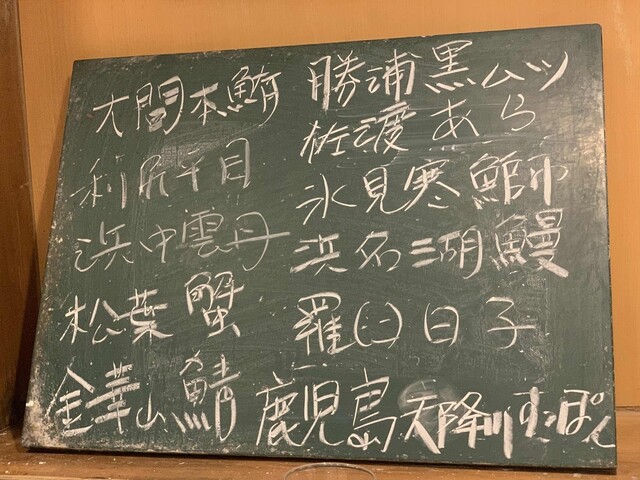 大間本鮪
利尻平目
浜中雲丹
松葉蟹
金華山鯖
勝浦黒ムツ
佐渡あら
氷見寒鰤
浜名湖鰻
羅臼白子
鹿児島天降川すっぽん